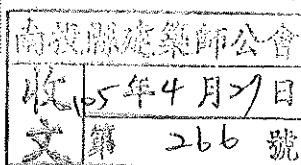 南投縣建築師公會
收文
105年4月27日
第 266 號